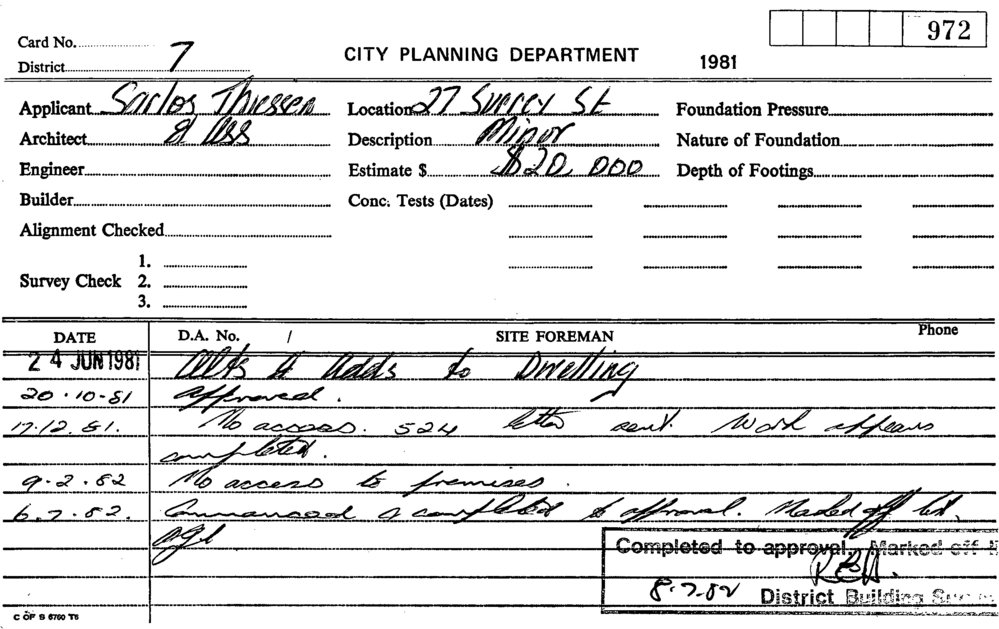 972
Card No. 7
CITY PLANNING DEPARTMENT 1981
District
Applicant Sarlos Thiessen Location 27 Surrey St Foundation Pressure
Architect & Ass Description Minor Nature of Foundation
Engineer Estimate $ $20,000 Depth of Footings
Builder Conc. Tests (Dates)
Alignment Checked
1.
Survey Check 2.
3.
DATE D.A. No. / SITE FOREMAN Phone
24 JUN 1981 Alts & Adds to Dwelling
20.10.81 approved.
17.12.81. No access. 524 letter sent. Work appears
completed.
9.2.82 No access to premises.
6.7.82. Commenced & completed to approval. Marked off list.
Completed to approval. Marked off
8.7.82 District Building
C OF S 6760 T6